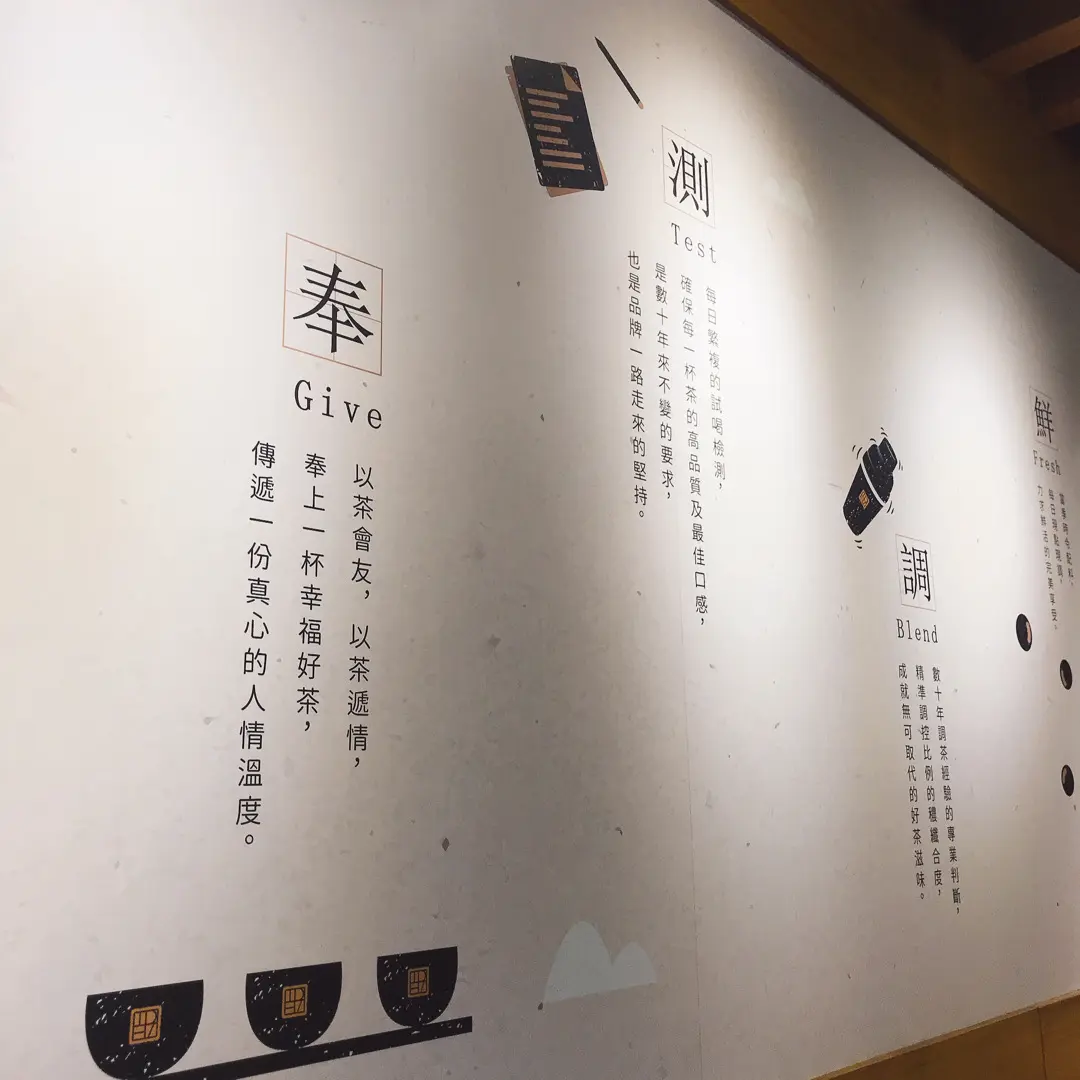 鮮
Fresh
當季時令配料，
每日現點現調，
力求鮮活的完美享受。
調
Blend
數十年調茶經驗的專業判斷，
精準調控比例的穠纖合度，
成就無可取代的好茶滋味。
測
Test
每日繁複的試喝檢測，
確保每一杯茶的高品質及最佳口感，
是數十年來不變的要求，
也是品牌一路走來的堅持。
奉
Give
以茶會友，以茶遞情，
奉上一杯幸福好茶，
傳遞一份真心的人情溫度。